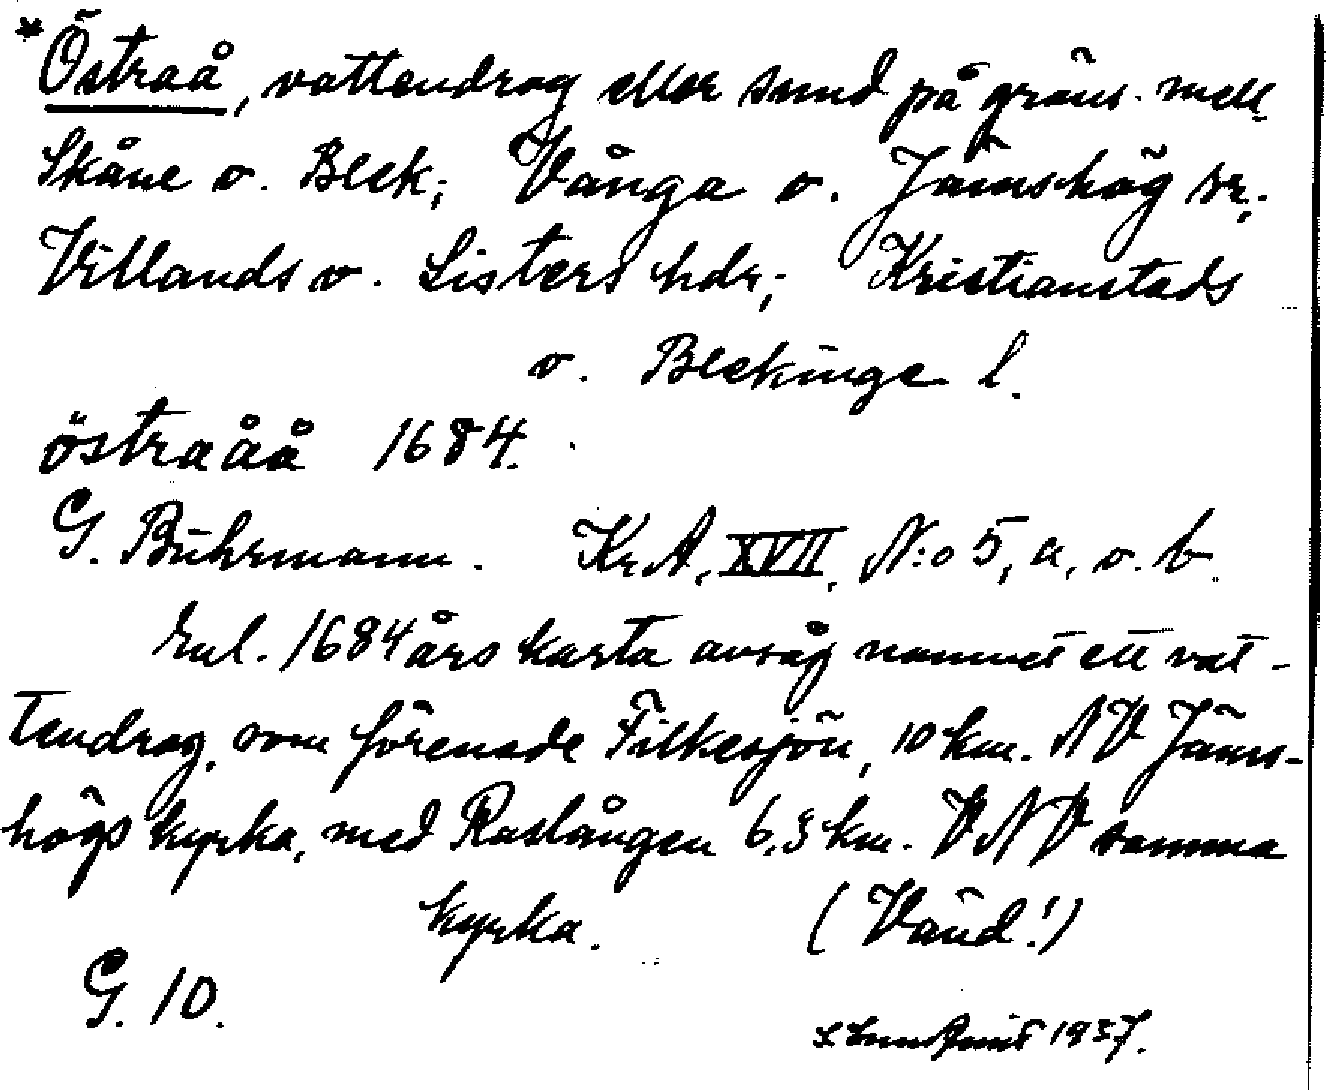 *Östraå, vattendrag eller sund på gräns. mell.
Skåne o. Blek; Vånga o. Jämshög sr;
Villands o. Listers hdr; Kristianstads
o. Blekinge l.
östraåå 1684.
G. Buhrmann. Kr.A. XVII, N:o 5, a, o. b.
Enl. 1684 års karta avsåg namnet ett vat-
tendrag, som förenade Filkesjön, 10 km. NV Jäms-
högs kyrka, med Raslången 6,3 km. VNV samma
kyrka. (Vänd!)
G. 10.
1937.